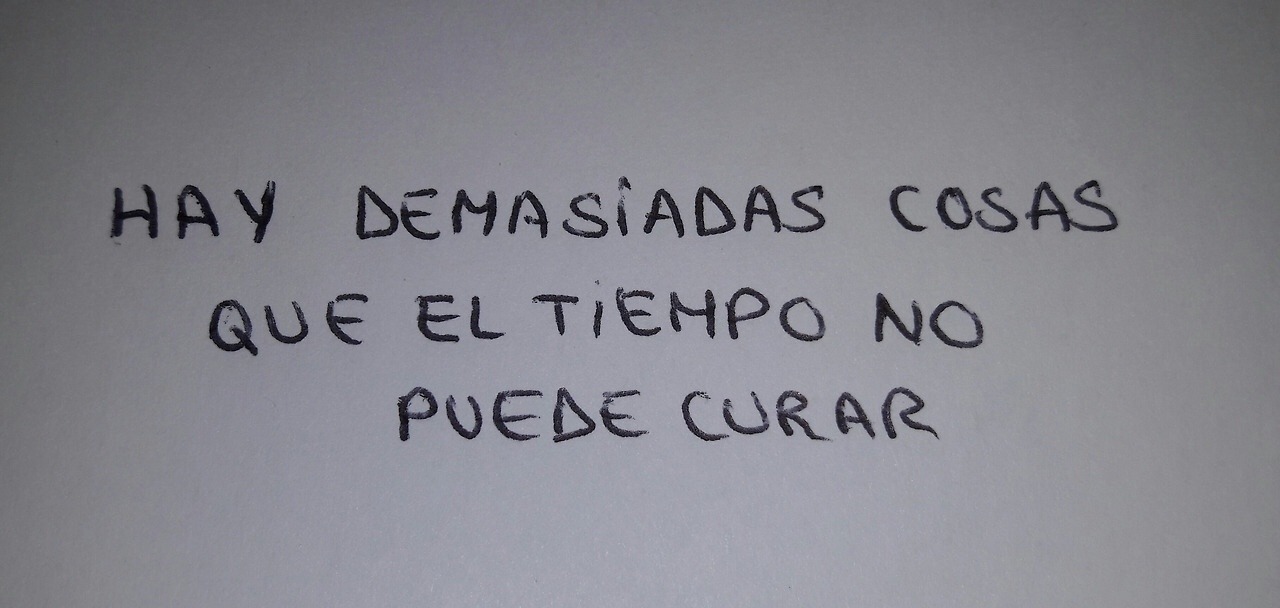 HAY DEMASiADAS COSAS
QUE EL TiEMPO NO
PUEDE CURAR